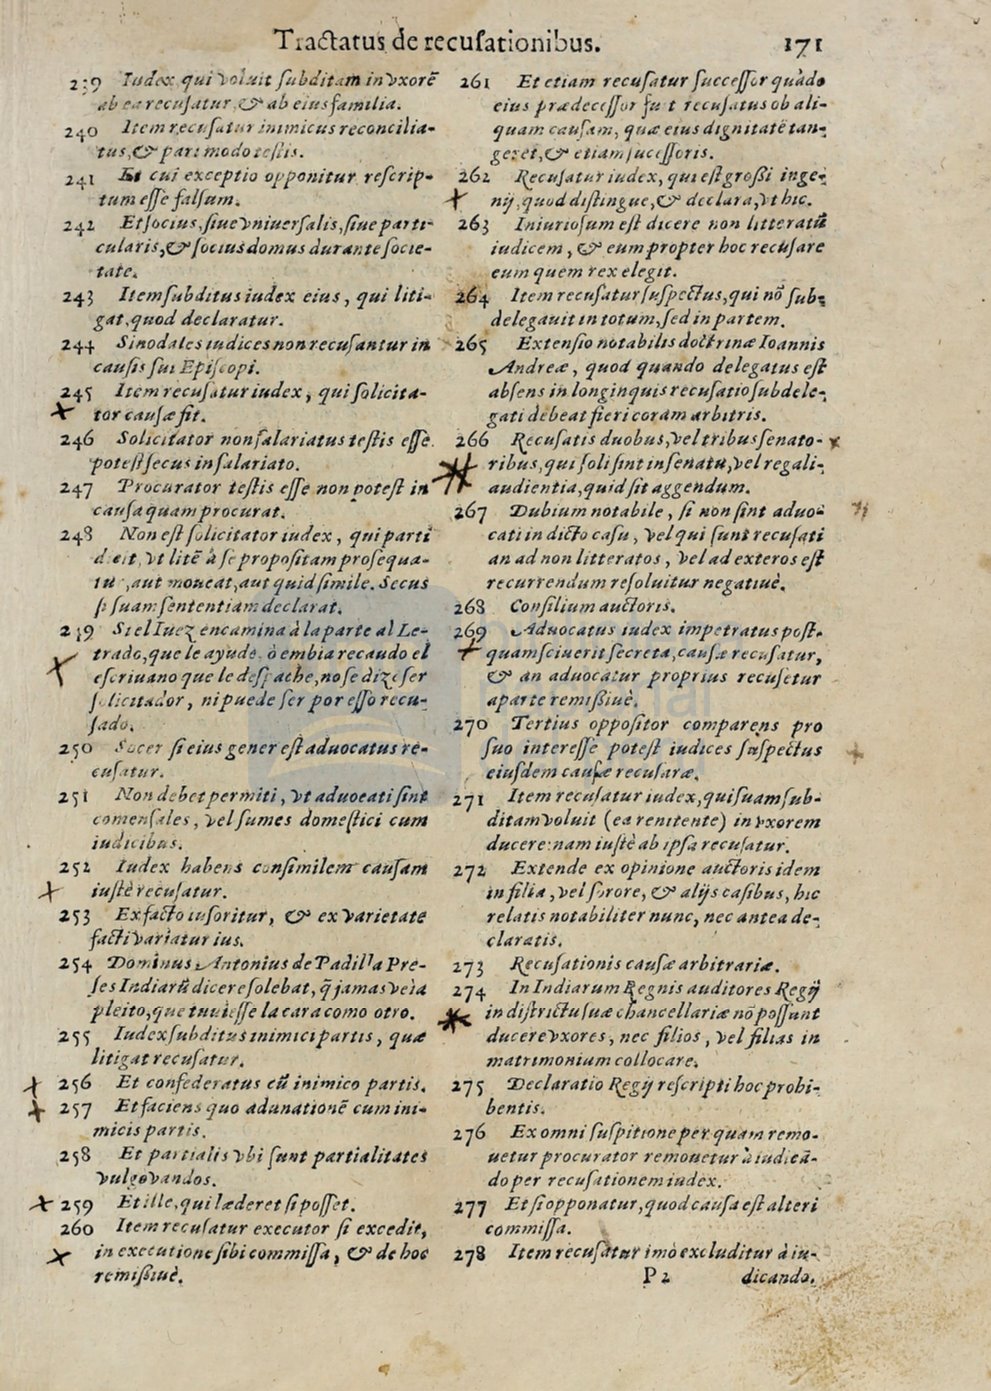 Tractatus de recusationibus. 171
239 Iudex qui voluit subditam in vxorẽ
ab ea recusatur, & ab eius familia.
240 Item recusatur inimicus reconcilia-
tus, & pari modo testis.
241 Et cui exceptio opponitur rescrip-
tum esse falsum.
242 Et socius, siue vniuersalis, siue parti-
cularis, & socius domus durante socie-
tate.
243 Item subditus iudex eius, qui liti-
gat, quod declaratur.
244 Sinodales iudices non recusantur in
causis sui Episcopi.
245 Item recusatur iudex, qui solicita-
tor causæ fit.
246 Solicitator non salariatus testis esse
potest secus in salariato.
247 Procurator testis esse non potest in
causa quam procurat.
248 Non est solicitator iudex, qui parti
dicit, vt litẽ à se propositam prosequa-
tur, aut moueat, aut quid simile. Secus
si suam sententiam declarat.
249 Si el Iuez encamina à la parte al Le-
trado, que le ayude, ò embia recaudo el
escriuano que le despache, no se dize ser
solicitador, ni puede ser por esso recu-
sado.
250 Socer si eius gener est aduocatus re-
cusatur.
251 Non debet permiti, vt aduocati sint
comensales, vel fumes domestici cum
iudicibus.
252 Iudex habens consimilem causam
iustè recusatur.
253 Ex facto ius oritur, & ex varietate
facti variatur ius.
254 Dominus Antonius de Padilla Pre-
ses Indiarũ dicere solebat, q̃ jamas veìa
pleito, que tuuiesse la cara como otro.
255 Iudex subditus inimici partis, quæ
litigat recusatur.
256 Et confederatus cũ inimico partis.
257 Et faciens quo adunationẽ cum ini-
micis partis.
258 Et partialis vbi sunt partialitates
vulgo vandos.
259 Et ille, qui læderet si posset.
260 Item recusatur executor si excedit,
in executione sibi commissa, & de hoc
remissiuè.
261 Et etiam recusatur successor quãdo
eius prædecessor fuit recusatus ob ali-
quam causam, quæ eius dignitatẽ tan-
geret, & etiam sucessoris.
262 Recusatur iudex, qui est grossi inge-
nij, quod distingue, & declara, vt hic.
263 Iniuriosum est dicere non litteratũ
iudicem, & eum propter hoc recusare
eum quem rex elegit.
264 Item recusatur suspectus, qui nõ sub-
delegauit in totum, sed in partem.
265 Extensio notabilis doctrinæ Ioannis
Andreæ, quod quando delegatus est
absens in longinquis recusatio subdele-
gati debeat fieri coram arbitris.
266 Recusatis duobus, vel tribus senato-
ribus, qui soli sint in senatu, vel regali
audientia, quid sit aggendum.
267 Dubium notabile, si non sint aduo-
cati in dicto casu, vel qui sunt recusati
an ad non litteratos, vel ad exteros est
recurrendum resoluitur negatiuè.
268 Consilium auctoris.
269 Aduocatus iudex impetratus post-
quam sciuerit secreta, causæ recusatur,
& an aduocatur proprius recusetur
aparte remissiuè.
270 Tertius oppositor comparens pro
suo interesse potest iudices suspectus
eiusdem causæ recusaræ.
271 Item recusatur iudex, qui suam sub-
ditam voluit (ea renitente) in vxorem
ducere: nam iustè ab ipsa recusatur.
272 Extende ex opinione auctoris idem
in filia, vel sorore, & alijs casibus, hic
relatis notabiliter nunc, nec antea de-
claratis.
273 Recusationis causæ arbitrariæ.
274 In Indiarum Regnis auditores Regij
in districtu suæ chancellariæ nõ possunt
ducere vxores, nec filios, vel filias in
matrimonium collocare.
275 Declaratio Regij rescripti hoc prohi-
bentis.
276 Ex omni suspitione per quam remo-
uetur procurator remouetur à iudicã-
do per recusationem iudex.
277 Et si opponatur, quod causa est alteri
commissa.
278 Item recusatur imò excluditur à iu-
P 2 dicando.